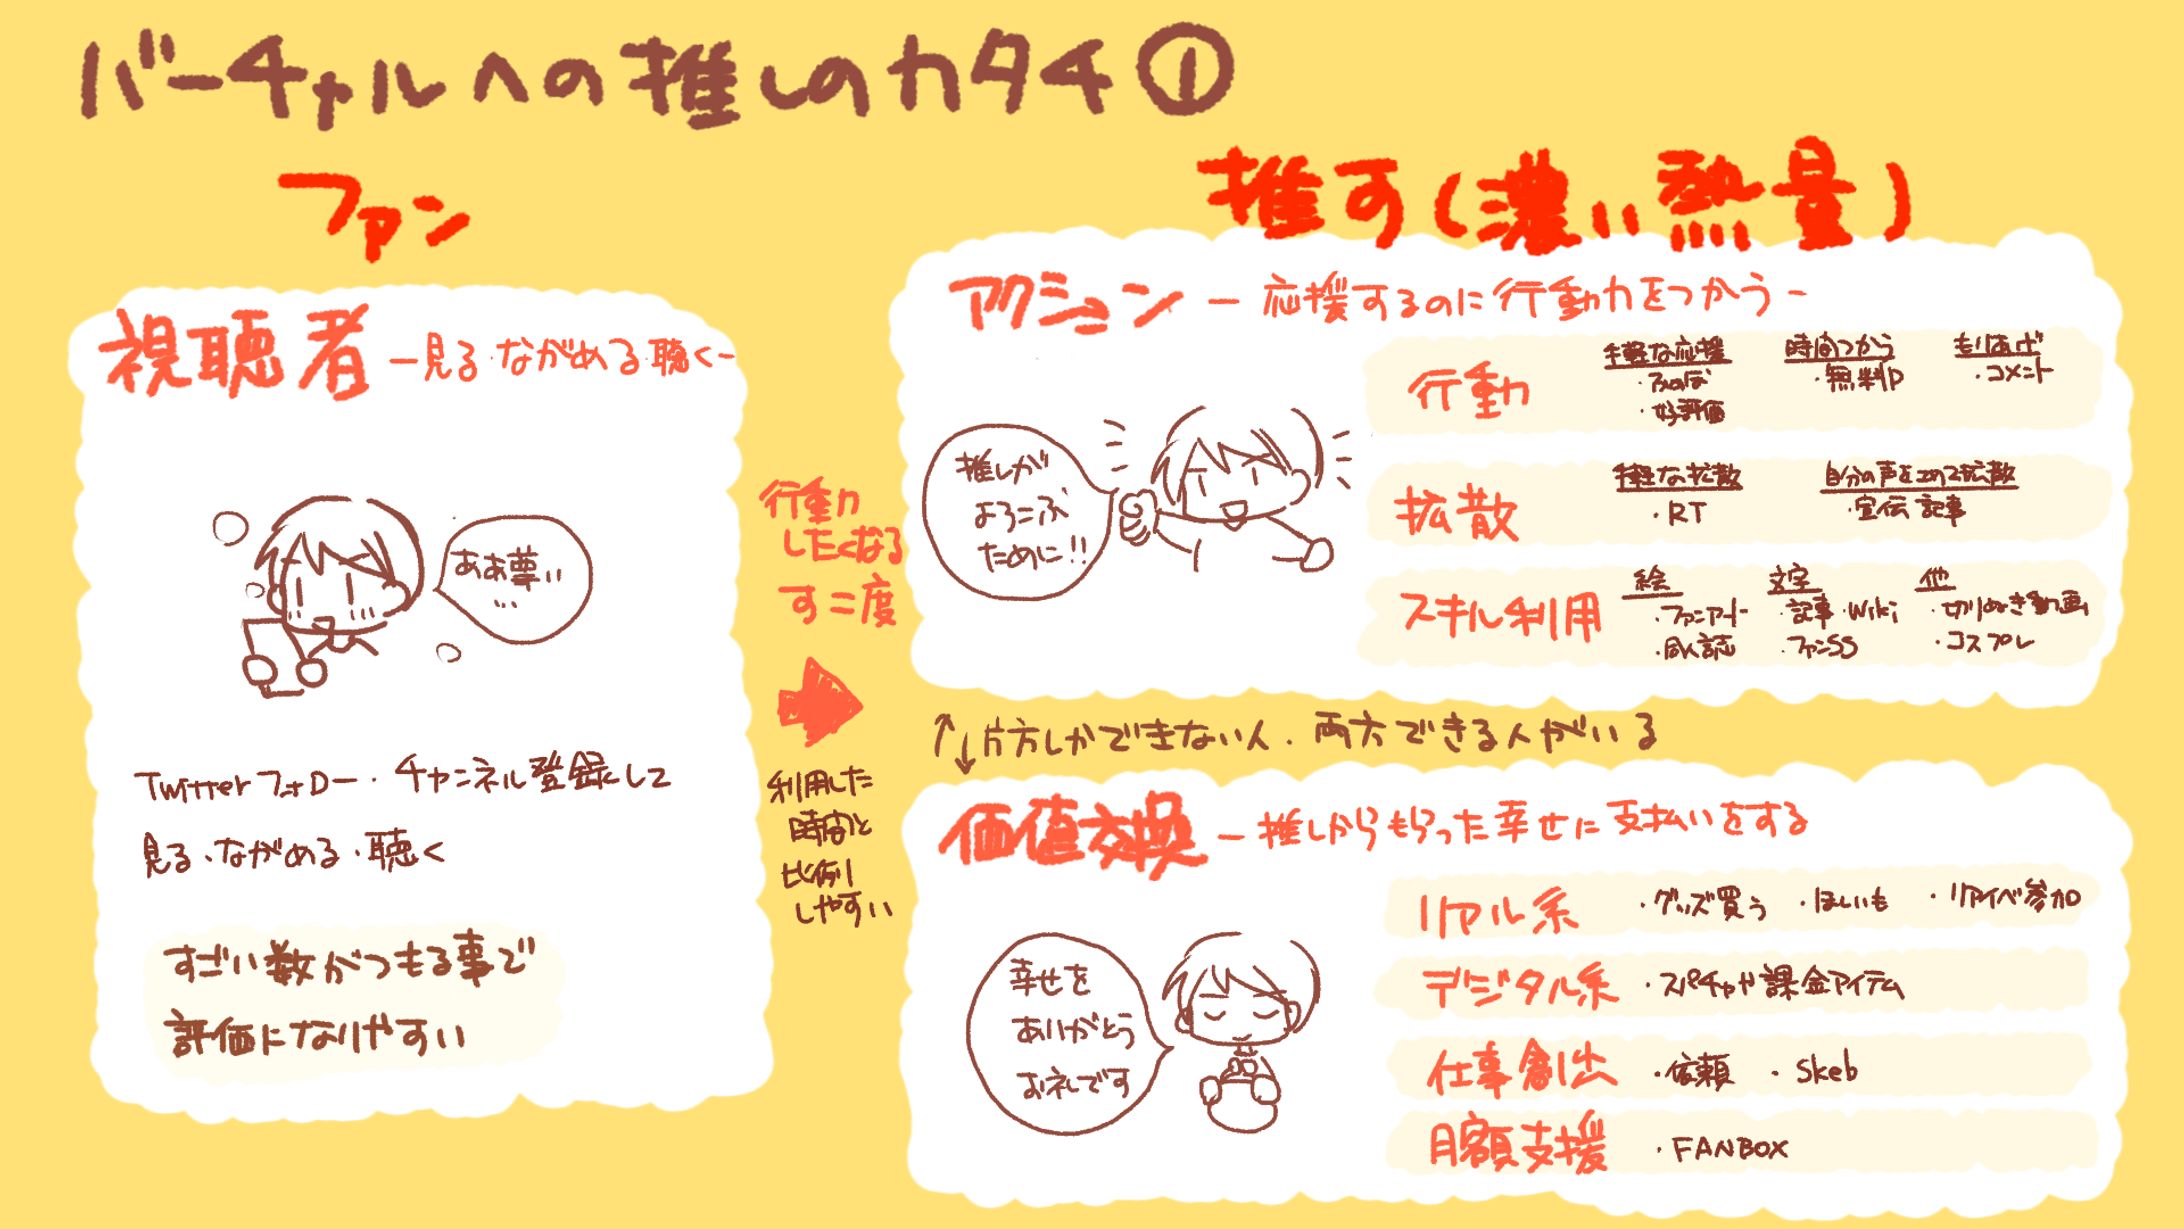 バーチャルへの推しのカタチ①
ファン
視聴者 －見る・ながめる・聴く－
ああ尊い
…
Twitterフォロー・チャンネル登録して
見る・ながめる・聴く
すごい数がつもる事で
評価になりやすい
行動
したくなる
すこ度
利用した
時間と
比例
しやすい
推す(濃い熱量)
アクション －応援するのに行動力をつかう－
推しが
よろこぶ
ために!!
行動
手軽な応援
・ふぁぼ
・好評価
時間つかう
・無料D
もりあげ
・コメント
拡散
手軽な拡散
・RT
自分の声をこめて拡散
・宣伝記事
スキル利用
絵
・ファンアート
・同人誌
文字
・記事・Wiki
・ファンSS
他
・切りぬき動画
・コスプレ
↑↓片方しかできない人・両方できる人がいる
価値交換 －推しからもらった幸せに支払いをする
幸せを
ありがとう
お礼です
リアル系 ・グッズ買う ・ほしいも ・リアイベ参加
デジタル系 ・スパチャや課金アイテム
仕事創出 ・依頼 ・Skeb
月額支援 ・FANBOX